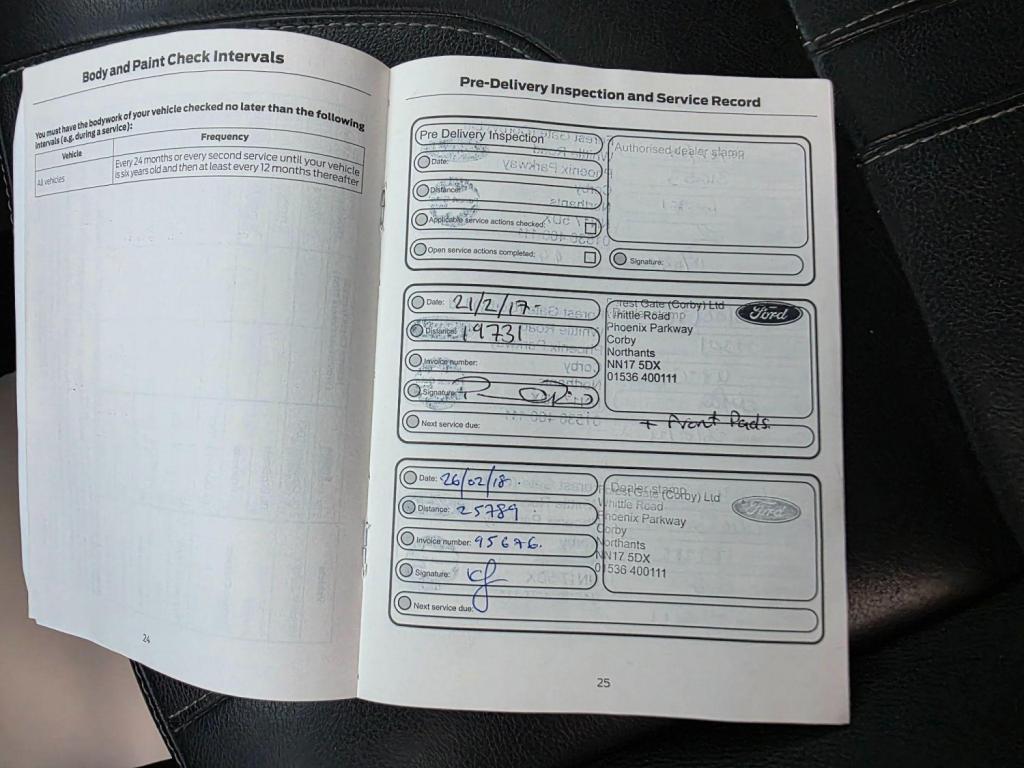 Body and Paint Check Intervals
You must have the bodywork of your vehicle checked no later than the following
intervals (e.g. during a service):
Vehicle
Frequency
All vehicles
Every 24 months or every second service until your vehicle
is six years old and then at least every 12 months thereafter
24
Pre-Delivery Inspection and Service Record
Pre Delivery Inspection
Date:
Distance:
Applicable service actions checked:
Open service actions completed:
Authorised dealer stamp
Signature:
Date: 21/2/17
Distance: 19731
Invoice number:
Signature:
Next service due:
Forest Gate (Corby) Ltd
Whittle Road
Phoenix Parkway
Corby
Northants
NN17 5DX
01536 400111
Ford
+ Front Pads.
Date: 26/02/18
Distance: 25789
Invoice number: 95676.
Signature:
Next service due:
Dealer stamp
Forest Gate (Corby) Ltd
Whittle Road
Phoenix Parkway
Corby
Northants
NN17 5DX
01536 400111
Ford
25